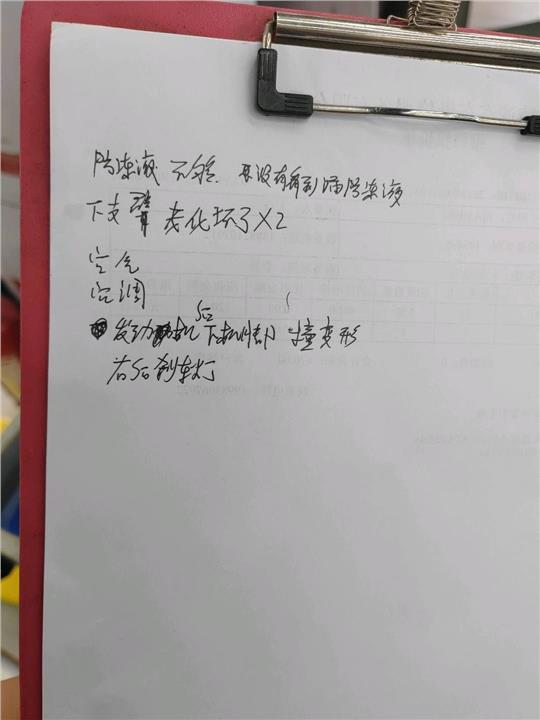 防冻液 不够. 且没有看到漏防冻液
下支臂 老化坏了X2
空气
空调
发动机后下 部 撞变形
右后刹车灯